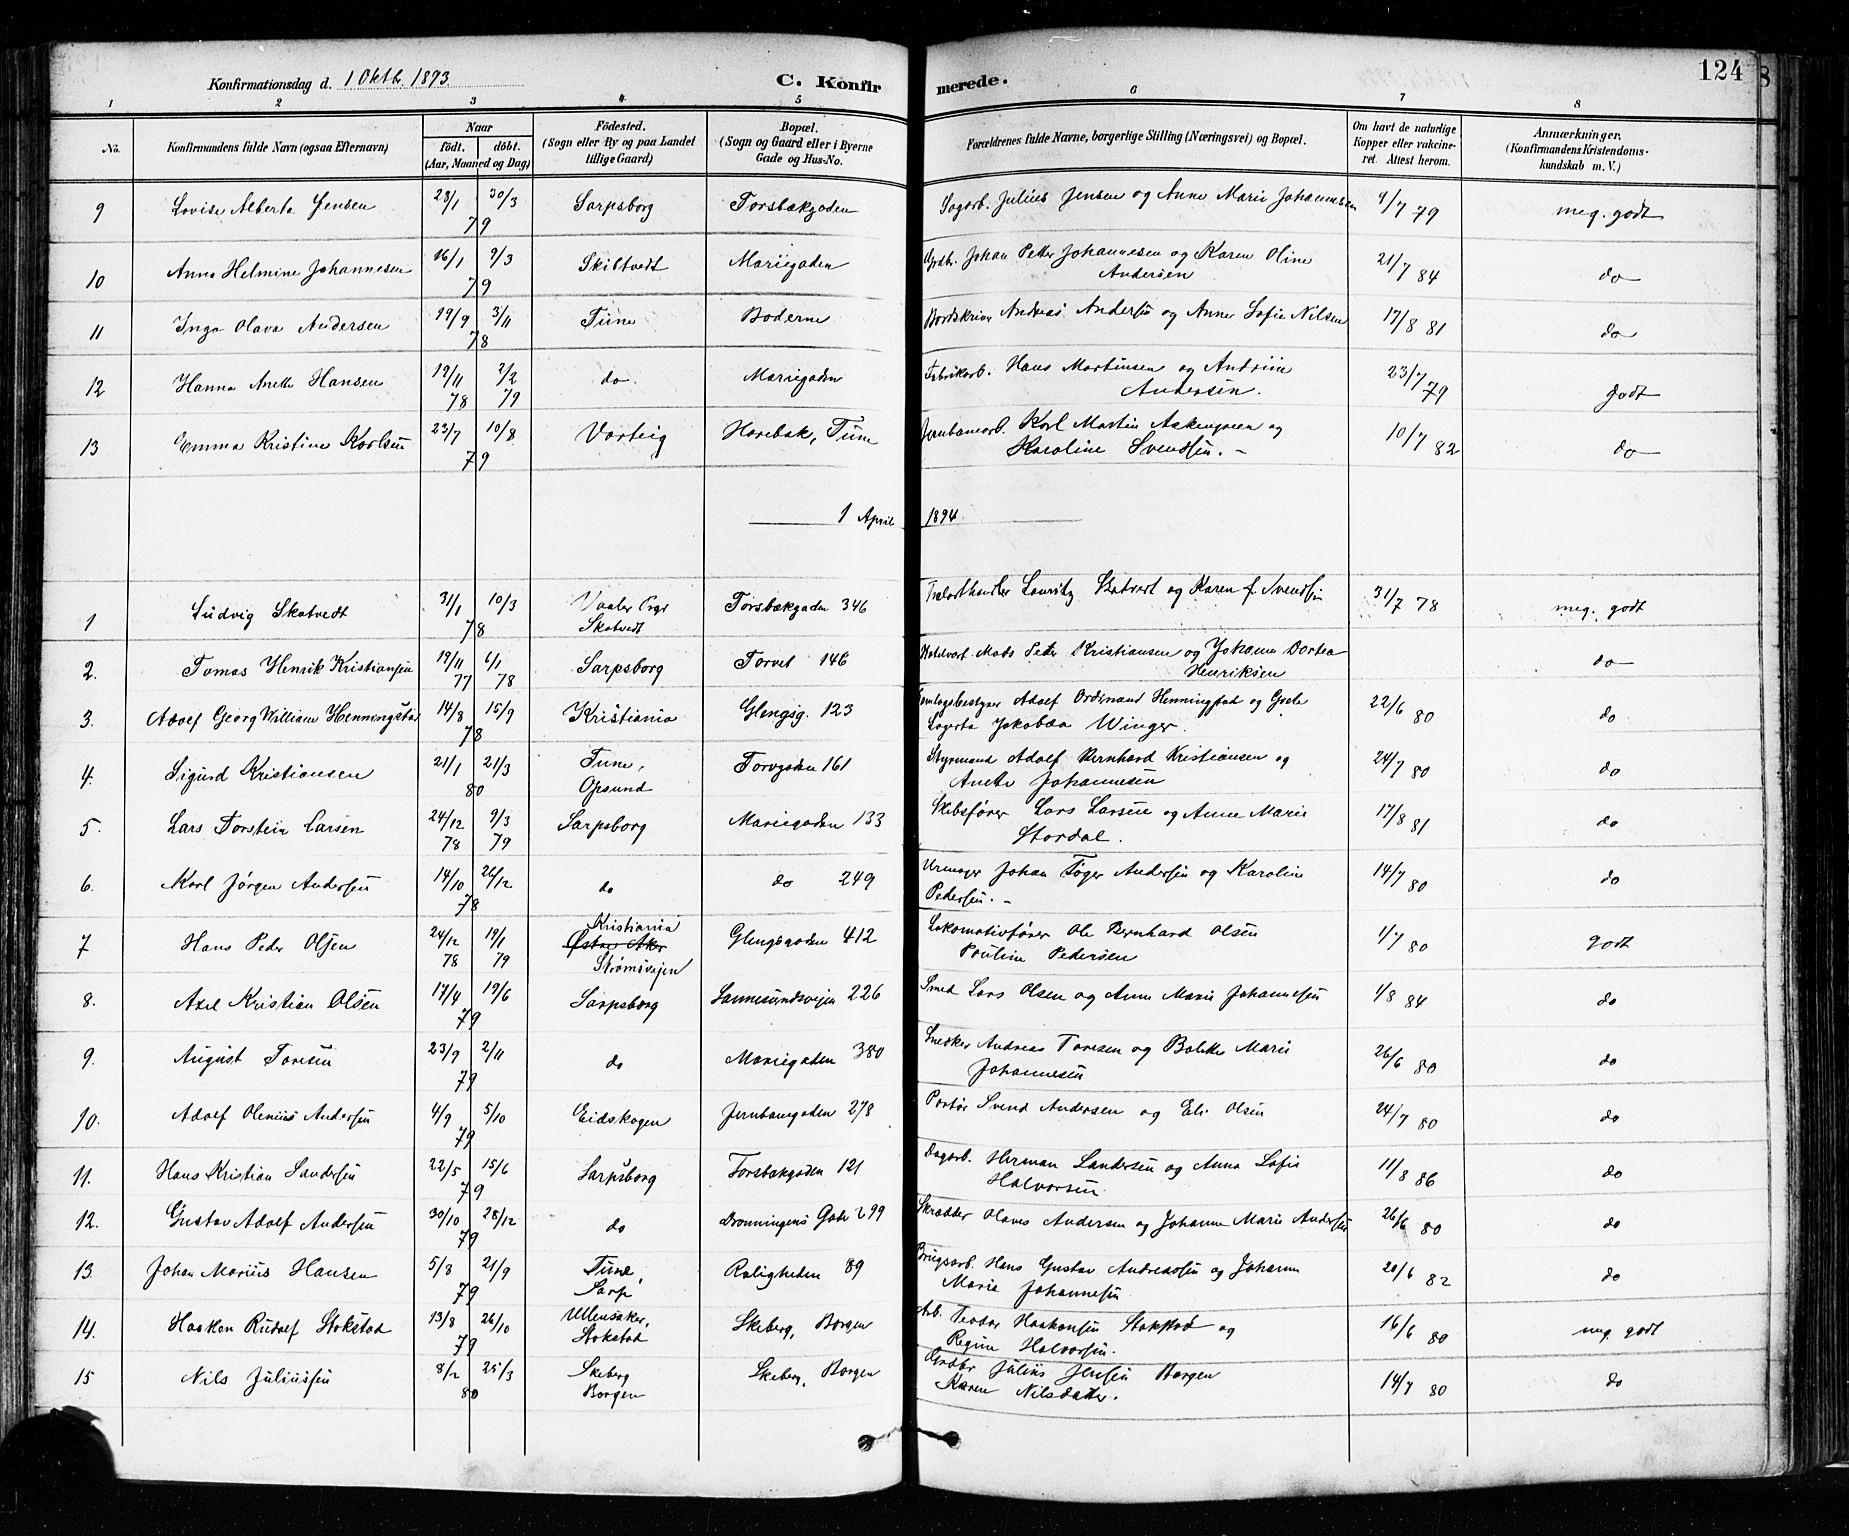 124
Konfirmationsdag d. 1 Oktbr. 1893
C. Konfirmerede.
1 2 3 4 5 6 7 8
No. Konfirmandens fulde Navn (ogsaa Efternavn) Naar födt. döbt. (Aar, Maaned og Dag) Födested. (Sogn eller By og paa Landet tillige Gaard) Bopæl. (Sogn og Gaard eller i Byerne Gade og Hus-No. Forældrenes fulde Navne, borgerlige Stilling (Næringsvei) og Bopæl. Om havt de naturlige Kopper eller vakcineret. Attest herom. Anmærkninger. (Konfirmandens Kristendomskundskab m. V.)
9 Lovise Alberta Jensen 28/1 30/3 79 Sarpsborg Torsbækgaden Sagarb. Julius Jensen og Anne Marie Johannesen 9/7 79 meg. godt
10 Anna Helmine Johannesen 16/1 9/3 79 Skiltvedt Mariegaden Grdbr. Johan Petter Johannesen og Karen Oline Andersen 21/7 84 do
11 Inga Olava Andersen 19/9 3/11 78 Tune Boderne Bordskriver Andreas Andersen og Anne Sofie Nilsen 17/8 81 do
12 Hanna Anette Hansen 19/11 78 2/2 79 do. Mariegaden Fabrikarb. Hans Martinsen og Andrine Andersen. 23/7 79 godt
13 Emma Kristine Karlsen 23/7 10/8 79 Varteig Harebak, Tune Jernbanearb. Karl Martin Askengreen og Karoline Svendsen. - 10/7 82 do
1 April 1894
1 Ludvig Skatvedt 31/1 10/3 78 Vaaler Prgj Skatvedt Torsbækgaden 346 Trælasthandler Lauritz Skatvedt og Karen f. Svendsen 31/7 78 meg. godt
2. Tomas Henrik Kristiansen 19/11 77 6/1 78 Sarpsborg Torvet 146 Hotelvært Mads Peder Kristiansen og Johanne Dortea Henriksen do
3. Adolf Georg William Henningstad 14/8 15/9 78 Kristiania Glengsg. 123 Samlagsbestyrer Adolf Ordinand Henningstad og Grete Lagerta Jakobea Winger. 22/6 80 do
4. Sigurd Kristiansen 21/1 21/3 80 Tune, Opsund Torvgaden 161 Styrmand Adolf Bernhard Kristiansen og Anette Johannesen 24/7 80 do
5. Lars Torstein Larsen 24/12 78 9/3 79 Sarpsborg Mariegaden 133 Skibsfører Lars Larsen og Anne Marie Stordal. 17/8 81 do
6. Karl Jørgen Andersen 14/10 26/12 78 do do 249 Urmager Johan Tøger Andersen og Karoline Pedersen. - 14/7 80 do
7 Hans Peder Olsen 24/12 78 19/1 79 Kristiania Østre Aker Strømsvejen Glengsgaden 412 Lokomotivfører Ole Bernhard Olsen Pouline Pedersen 1/7 80 godt
8. Axel Kristian Olsen 17/4 19/6 79 Sarpsborg Sannesundsvejen 226 Smed Lars Olsen og Anne Marie Johannesen 1/8 84 do
9. August Toresen 23/9 2/11 79 do Mariegaden 380 Snedker Andreas Toresen og Bolette Marie Johannesen 26/6 80 do
10. Adolf Olenius Andersen 4/9 5/10 79 Eidskogen Jernbanegaden 278 Portør Svend Andersen og Eli Olsen 24/7 80 do
11. Hans Kristian Sandersen 22/5 15/6 79 Sarpsborg Torsbækgaden 121 Dagarb. Herman Sandersen og Anna Sofie Halvorsen. 11/8 86 do
12. Gustav Adolf Andersen 30/10 28/12 79 do Dronningens Gade 299 Skrædder Olaves Andersen og Johanne Marie Andersen 26/6 80 do
13. Johan Marius Hansen 5/8 21/9 79 Tune, Sarp Roligheden 89 Brugsarb. Hans Gustav Andreassen og Johanne Marie Johannesen 20/6 82 do
14. Haakon Rudolf Stokstad 13/8 26/10 79 Ullensaker, Stokstad Skeberg, Borgen Arb. Teodor Haakonsen Stokstad og Regine Halvorsen. 16/6 80 meg. godt
15 Nils Juliussen 8/2 25/3 80 Skeberg Borgen Skeberg, Borgen Grdbr Julius Jensen Borgen Karen Nilsdatter. 14/7 80 do